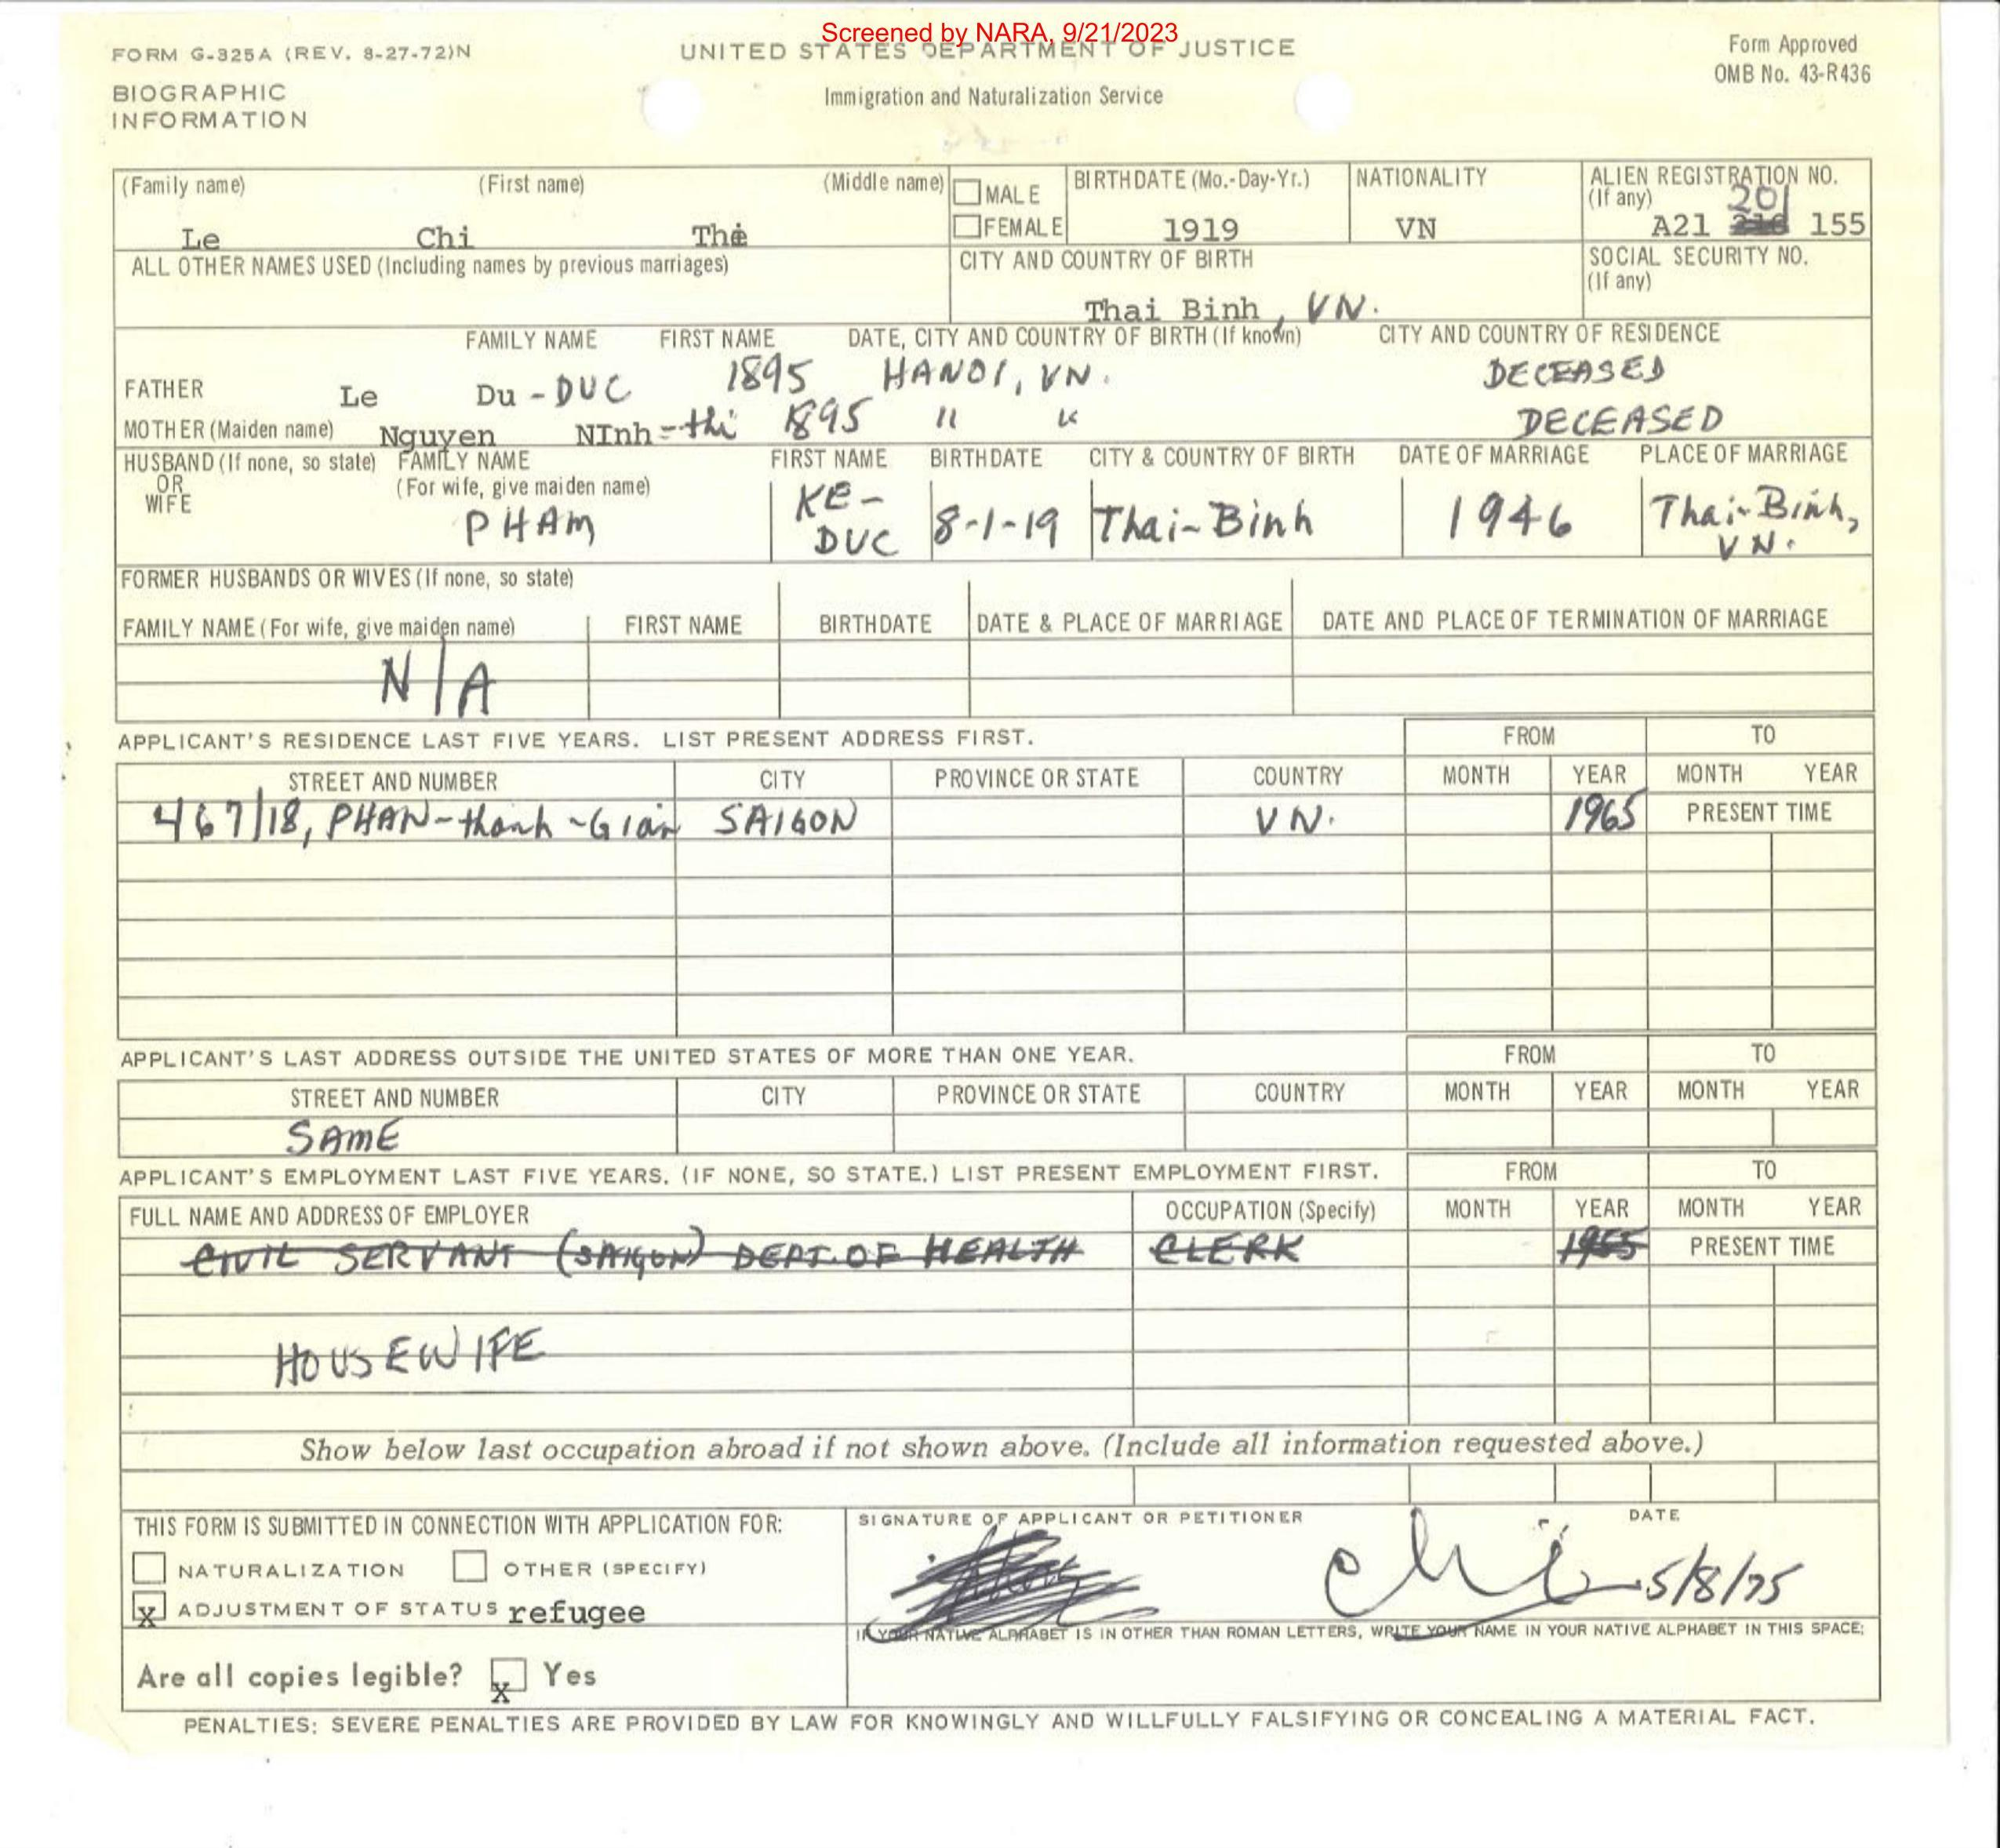 Screened by NARA, 9/21/2023
FORM G-325A (REV. 8-27-72)N UNITED STATES DEPARTMENT OF JUSTICE Form Approved
OMB No. 43-R436
BIOGRAPHIC Immigration and Naturalization Service
INFORMATION
(Family name) (First name) (Middle name) MALE BIRTHDATE (Mo.-Day-Yr.) NATIONALITY ALIEN REGISTRATION NO.
(If any) 201
Le Chi The FEMALE 1919 VN A21 155
ALL OTHER NAMES USED (Including names by previous marriages) CITY AND COUNTRY OF BIRTH SOCIAL SECURITY NO.
(If any)
Thai Binh, VN.
FAMILY NAME FIRST NAME DATE, CITY AND COUNTRY OF BIRTH (If known) CITY AND COUNTRY OF RESIDENCE
FATHER Le Du - DUC 1895 HANOI, VN. DECEASED
MOTHER (Maiden name) Nguyen NInh - thi 1895 " " DECEASED
HUSBAND (If none, so state) FAMILY NAME FIRST NAME BIRTHDATE CITY & COUNTRY OF BIRTH DATE OF MARRIAGE PLACE OF MARRIAGE
OR (For wife, give maiden name)
WIFE
PHAM KE-DUC 8-1-19 Thai-Binh 1946 Thai-Binh, VN.
FORMER HUSBANDS OR WIVES (If none, so state)
FAMILY NAME (For wife, give maiden name) FIRST NAME BIRTHDATE DATE & PLACE OF MARRIAGE DATE AND PLACE OF TERMINATION OF MARRIAGE
N/A
APPLICANT'S RESIDENCE LAST FIVE YEARS. LIST PRESENT ADDRESS FIRST. FROM TO
STREET AND NUMBER CITY PROVINCE OR STATE COUNTRY MONTH YEAR MONTH YEAR
467/18, PHAN-thanh-Gian SAIGON VN. 1965 PRESENT TIME
APPLICANT'S LAST ADDRESS OUTSIDE THE UNITED STATES OF MORE THAN ONE YEAR. FROM TO
STREET AND NUMBER CITY PROVINCE OR STATE COUNTRY MONTH YEAR MONTH YEAR
SAME
APPLICANT'S EMPLOYMENT LAST FIVE YEARS. (IF NONE, SO STATE.) LIST PRESENT EMPLOYMENT FIRST. FROM TO
FULL NAME AND ADDRESS OF EMPLOYER OCCUPATION (Specify) MONTH YEAR MONTH YEAR
CIVIL SERVANT (SAIGON) DEPT. OF HEALTH CLERK 1955 PRESENT TIME
HOUSEWIFE
Show below last occupation abroad if not shown above. (Include all information requested above.)
THIS FORM IS SUBMITTED IN CONNECTION WITH APPLICATION FOR: SIGNATURE OF APPLICANT OR PETITIONER DATE
NATURALIZATION OTHER (SPECIFY)
x ADJUSTMENT OF STATUS refugee Chi 5/8/75
IF YOUR NATIVE ALPHABET IS IN OTHER THAN ROMAN LETTERS, WRITE YOUR NAME IN YOUR NATIVE ALPHABET IN THIS SPACE:
Are all copies legible? x Yes
PENALTIES: SEVERE PENALTIES ARE PROVIDED BY LAW FOR KNOWINGLY AND WILLFULLY FALSIFYING OR CONCEALING A MATERIAL FACT.